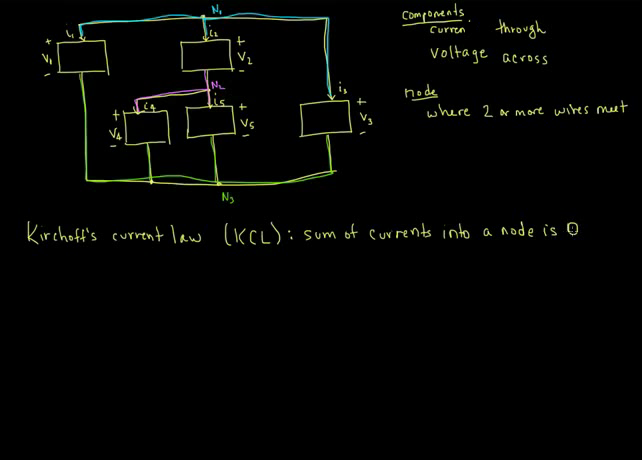 N₁
i₁
i₂
i₃
+
V₁
-
+
V₂
-
N₂
i₄
i₅
+
V₄
-
+
V₅
-
+
V₃
-
N₃
Components
Curren through
Voltage across
node
where 2 or more wires meet
Kirchoff's current law (KCL): sum of currents into a node is 0